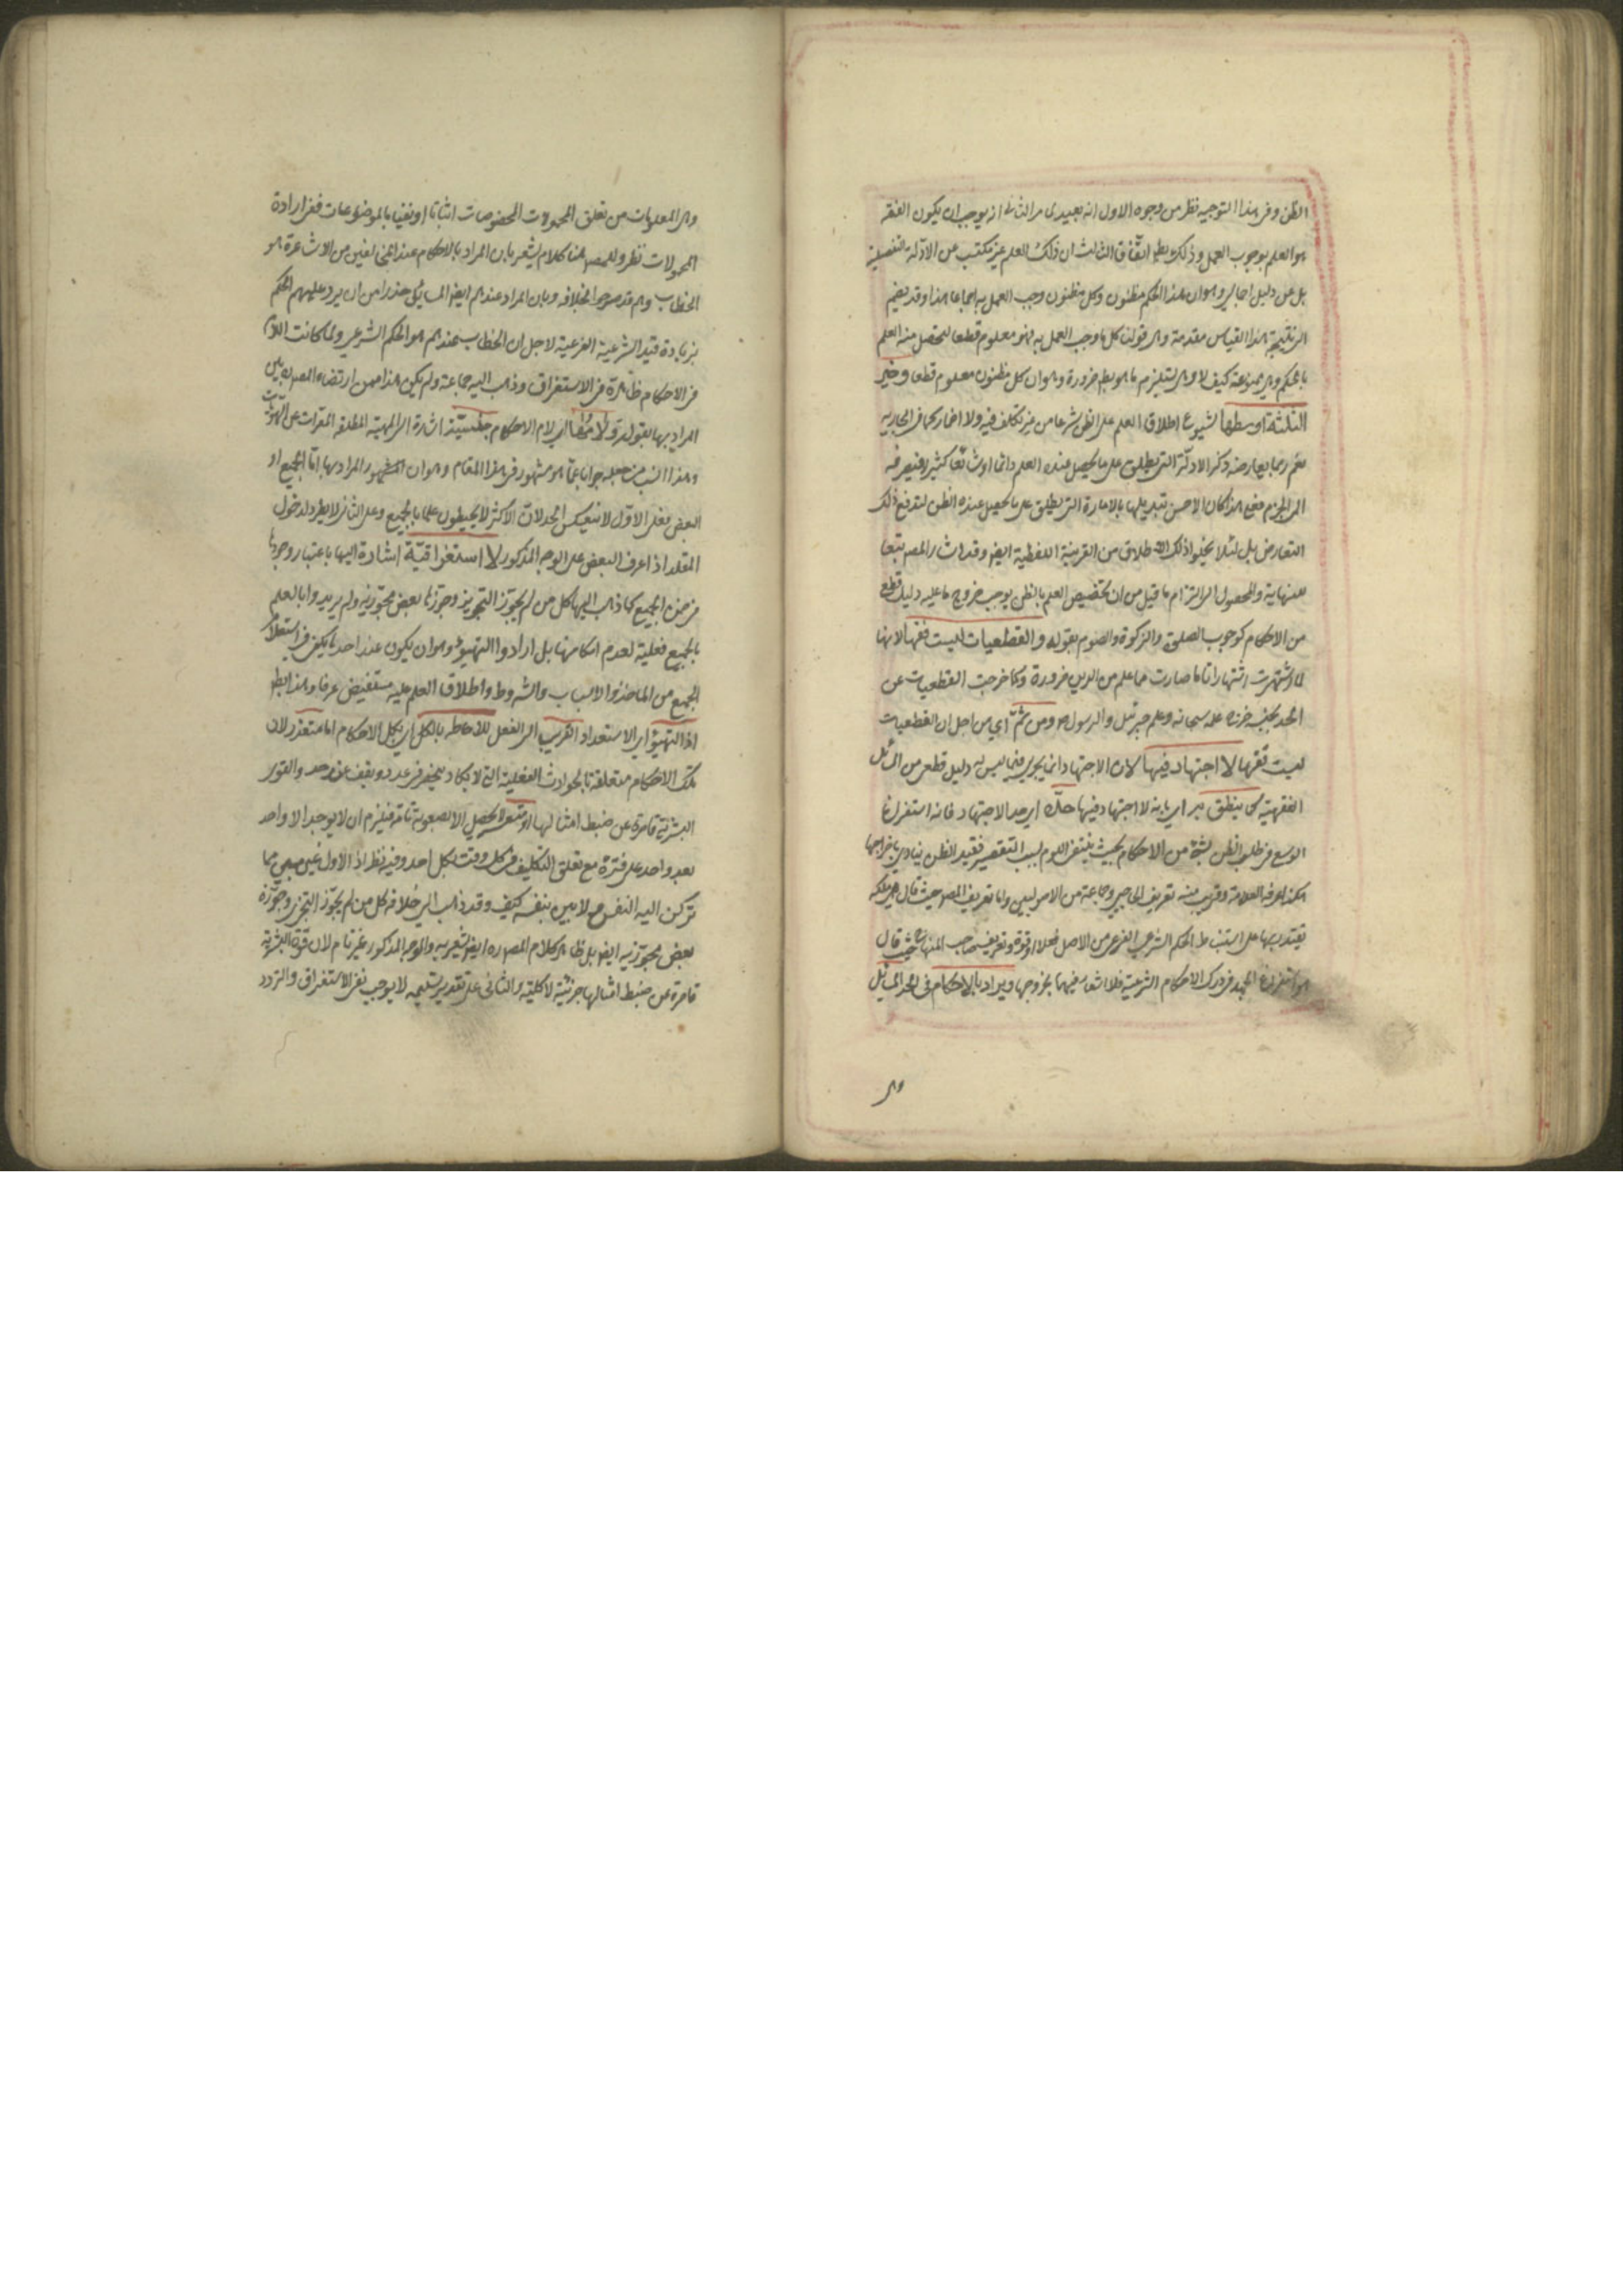 الظن وفى هذا التوجيه نظر من وجوه الاول انه بعيد الثانى انه يوجب ان يكون الفقه
هو العلم بوجوب العمل وذلك بط اتفاقا الثالث ان ذلك العلم غير مكتسب عن الادلة التفصيلية
بل عن دليل اجمالى وهو ان هذا الحكم مظنون وكل مظنون وجب العمل به اجماعا هذا وقد يضم
الى نتيجة هذا القياس مقدمة وهى قولنا كل ما وجب العمل به فهو معلوم قطعا ليحصل منه العلم
بالحكم وهى ممنوعة كيف لا وهى تستلزم ما هو بط ضرورة وهو ان كل مظنون معلوم قطعا وخير
الثلثة اوسطها لشيوع اطلاق العلم على الظن شرعا من غير تكلف فيه ولا اضمار كما فى
نعم ربما يعارضه ذكر الادلة التى يطلق على ما يحصل عنده العلم دائما او شائعا كثيرا فيصرفه
الى الجزم فعلى هذا كان الاحسن تبديلها بالامارة التى يطلق على ما يحصل عنده الظن ليندفع ذلك
التعارض بل لئلا يخلو ذلك الاطلاق من القرينة اللفظية ايضا وقد اشار المصه تبعا
للنهاية والمحصول الى التزام ما قيل من ان تخصيص العلم بالظن يوجب خروج ما عليه دليل قطع
من الاحكام كوجوب الصلوة والزكوة والصوم بقوله والقطعيات ليست فقها لانها
لما اشتهرت اشتهارا تاما صارت مما علم من الدين ضرورة وكما خرجت القطعيات عن
الحد بجنسه خرج علمه سبحانه وعلم جبرئيل والرسول ص ومن ثم اى من اجل ان القطعيات
ليست فقها لا اجتهاد فيها لان الاجتهاد انما يجرى فيما ليس له دليل قطعى من المسائل
الفقهية كما ينطق اى بانه لا اجتهاد فيها حده اى حد الاجتهاد فانه استفراغ
الوسع فى طلب الظن بشئ من الاحكام بحيث ينتفى اللوم بسبب التقصير فقيد الظن ينادى باخراجها
هكذا عرفه العلامة وقريب منه تعريف الحاجبى وجماعة من الاصوليين واما تعريف المصه حيث قال هو ملكة
يقتدر بها على استنباط الحكم الشرعى الفرعى من الاصل فعلا او قوة وتعريف صاحب المنهاج حيث قال
هو استفراغ الجهد فى درك الاحكام الشرعية فلا اشعار فيهما بخروجها ويراد بالاحكام فى الحد المسائل
وهى
وهى المعلومات من تعلق المحمولات المخصوصات اثباتا او نفيا بالموضوعات ففى ارادة
المحمولات نظر وللمصه هنا كلام يشعر بان المراد بالاحكام عند المخالفين من الاشاعرة هو
الخطاب وهم قد صرحوا بخلافه وبان المراد عندهم ايضا المسائل حذرا من ان يرد عليهم الحكم
بزيادة قيد الشرعية الفرعية لاجل ان الخطاب عندهم هو الحكم الشرعى ولما كانت اللام
فى الاحكام ظاهرة فى الاستغراق وذهب اليه جماعة ولم يكن هذا ممن ارتضاه المصه بين
المراد بها بقوله ولامها اى لام الاحكام جنسية اشارة الى المهية المطلقة المعراة عن
وهذا انسب من جعله جوابا عما هو مشهور فى هذا المقام وهو ان المراد بها اما الجميع او
البعض فعلى الاول لا ينعكس الحد لان الاكثر لا يحيطون علما بالجميع وعلى الثانى لا يطرد لدخول
المقلد اذا عرف البعض على الوجه المذكور لا استغراقية اشارة اليها باعتبار وجودها
فى ضمن الجميع كما ذهب اليها كل من لم يجوز التجزى وجوزها بعض مجوزيه ولم يريدوا بالعلم
بالجميع فعلية لعدم امكانها بل ارادوا التهيؤ وهو ان يكون عند احد ما يكفى فى استعلام
الجميع من المأخذ والاسباب والشروط واطلاق العلم عليه مستفيض عرفا وهذا بط
اذ التهيؤ اى الاستعداد القريب الى الفعل للاحاطة بالكل اى بكل الاحكام اما متعذر لان
تلك الاحكام متعلقة بالحوادث الفعلية التى لا يكاد ينحصر فى عدد ويقف عند حد والقوى
البشرية قاصرة عن ضبط امثالها او متعسر لا يحصل الا بصعوبة تامة فيلزم ان لا يوجد الا واحد
بعد واحد على فترة مع تعلق التكليف فى كل وقت بكل احد وفيه نظر اذ الاول غير مما
تركن اليه النفس ولا بين بنفسه كيف وقد ذهب الى خلافه كل من لم يجوز التجزى وجوزه
بعض مجوزيه ايضا بل ظاهر كلام المصه ره ايضا يشعر به والوجه المذكور غير تام لان قوة البشرية
قاصرة عن ضبط امثالها جزئية لا كلية والثانى على تقدير تسليمه لا يوجب نفى الاستغراق والتردد